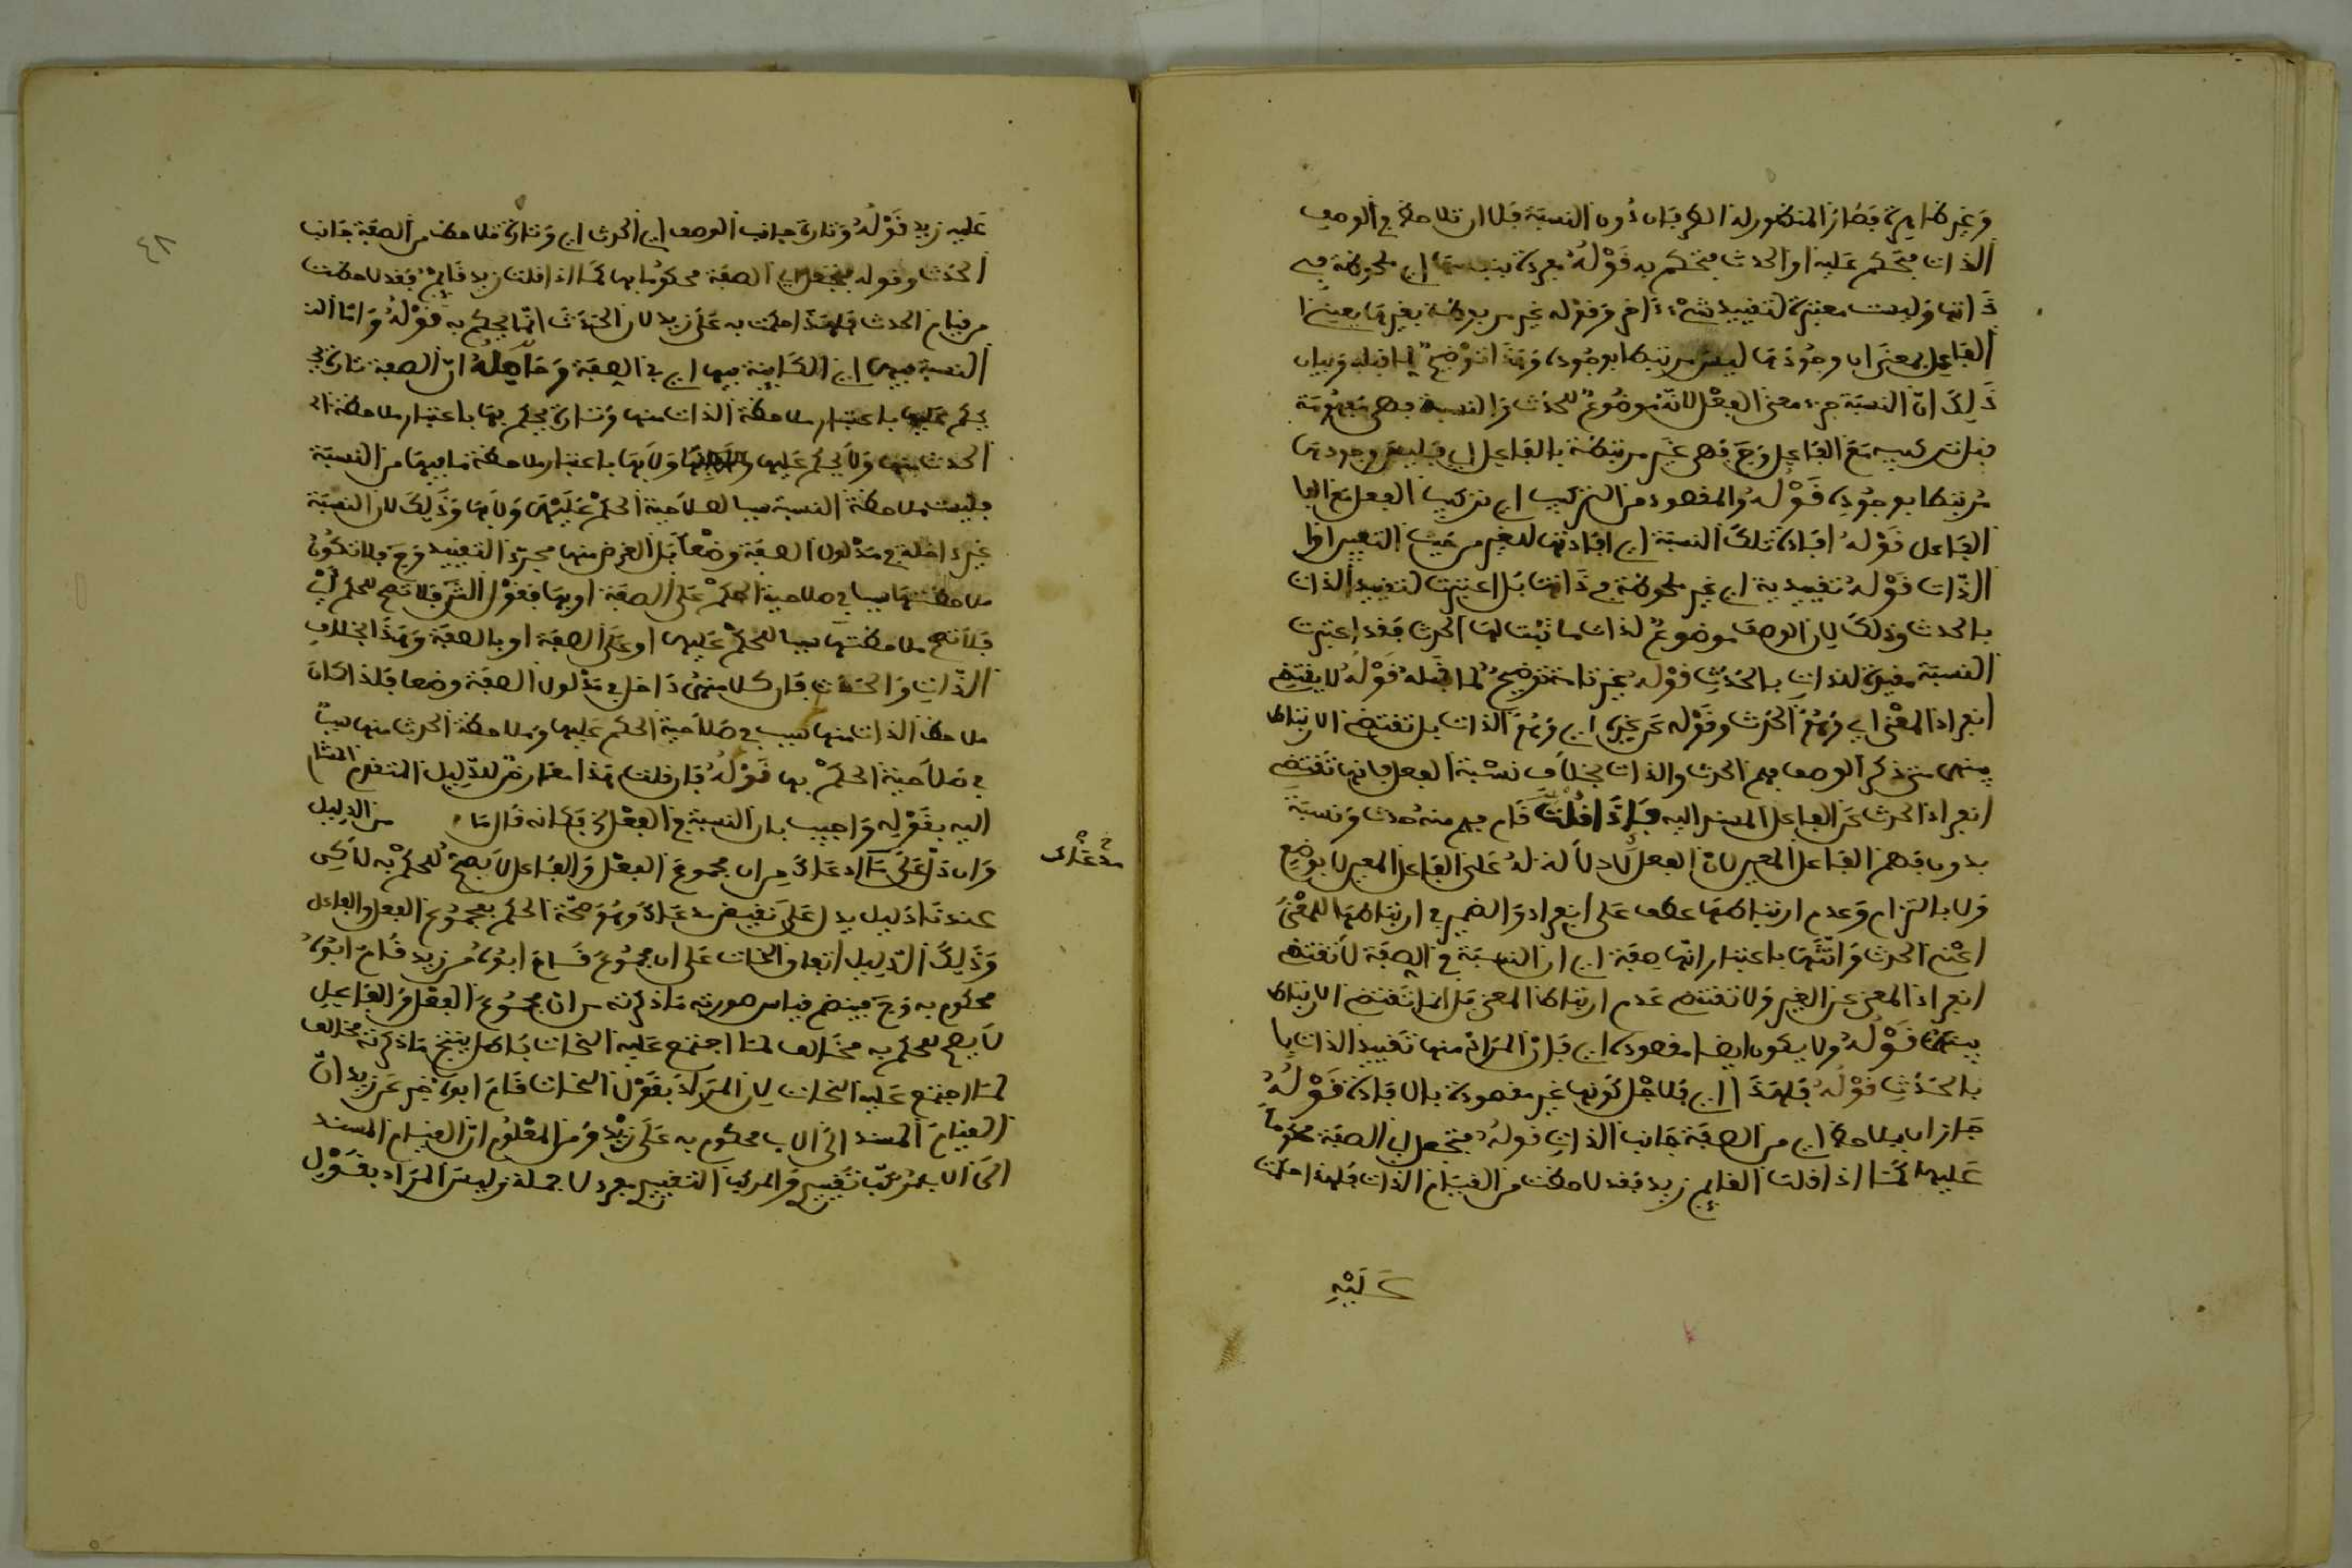 وغير ظاهرة فصار المنظور له الطرفان دون النسبة فلك ان تلاحظ في الوصف
الذات فتحكم عليه او الحدث فتحكم به قوله مفردة بنفسها اي ملحوظة في
ذاتها وليست معتبرة لتقييد شيء ءاخر وقوله غير مربوطة بغيرها يعني ا
الفاعل بمعنى ان وجودها ليس مرتبطا بوجوده وهذا توضيح لما قبله وبيان
ذلك ان النسبة جزء معنى الفعل لانه موضوع للحدث والنسبة فهي مفهومة
قبل تركيبه مع الفاعل وح فهي غير مرتبطة بالفاعل اي فليس وجودها
مرتبطا بوجوده قوله والمقصود من التركيب اي تركيب الفعل مع الفا
الفاعل قوله افادة تلك النسبة اي افادتها للغير من حيث التعبير اوا
الذات قوله تقييدية اي غير ملحوظة في ذاتها بل اعتبرت لتقييد الذات
بالحدث وذلك لان الوصف موضوع لذات ما ثبت لها الحدث فقد اعتبرت
النسبة مقيدة للذات بالحدث قوله غير تامة توضيح لما قبله قوله لا يقتضي
انفراد المعنى اي وهو الحدث وقوله عن غيره اي وهو الذات بل تقتضي الارتباط
بينهما متى ذكر الوصف فهم الحدث والذات بخلاف نسبة الفعل فانها تقتضي
انفراد الحدث عن الفاعل المسند اليه فاذا قلت قام فهم منه حدث ونسبة
بدون فهم الفاعل المعين لان الفعل لا دلالة له على الفاعل المعين لا بوضع
ولا بالتزام وعدم ارتباطها عطف على انفراد والضمير في ارتباطها للمعنى
اعني الحدث وانثها باعتبار انها صفة اي ان النسبة في الصفة لا تقتضي
انفراد المعنى عن الغير ولا تقتضي عدم ارتباط المعنى بل انما تقتضي الارتباط
بينهما قوله ولا يكون ايضا مقصودة اي فان المراد منها تقييد الذات با
بالحدث قوله فلهذا اي فلاجل كونها غير مقصودة بالافادة قوله
جاز ان يلاحظ اي من الصفة جانب الذات قوله فتجعل اي الصفة محكوما
عليها كما اذا قلت القايم زيد فقد لاحظت من القيام الذات فلهذا حكمت
عليه
٤٨
عليه زيد قوله وتارة جانب الوصف اي الحدث اي وتارة تلاحظ من الصفة جانب
الحدث وقوله فتجعل اي الصفة محكوما بها كما اذا قلت زيد قايم فقد لاحظت
من قيام الحدث فلهذا حكمت به على زيد لان الحدث انما يحكم به قوله واما الن
النسبة فيها اي الكاينة فيها اي في الصفة وحاصله ان الصفة تارة
يحكم عليها باعتبار ملاحظة الذات منها وتارة يحكم بها باعتبار ملاحظة ال
الحدث منها ولا يحكم عليها ولا بها باعتبار ملاحظة ما فيها من النسبة
فليست ملاحظة النسبة سببا لصلاحية الحكم عليها ولا بها وذلك لان النسبة
غير داخلة في مدلول الصفة وضعا بل الغرض منها مجرد التقييد وح فلا تكون
ملاحظتها سببا في صلاحية الحكم على الصفة او بها فقول الش فلا تصح للحكم اي
فلا تصح ملاحظتها سببا للحكم عليها او على الصفة او بالصفة وهذا بخلاف
الذات والحدث فان كلا منهما داخل في مدلول الصفة وضعا فلذا كان
ملاحظة الذات منها سبب في صلاحية الحكم عليها وملاحظة الحدث منها سببا
في صلاحية الحكم بها قوله فان قلت هذا معارض للدليل المتقدم المشار
اليه بقوله واجيب بان النسبة في الفعل الخ فكانه قال ما من الدليل
وان دل على مدعاك من ان مجموع الفعل والفاعل لا يصح للحكم به لاكن
مدعاك
عندنا دليل يدل على نقيض مدعاك وهو صحة الحكم بمجموع الفعل والفاعل
وذلك الدليل اتفاق النحات على ان مجموع قام ابوه من زيد قام ابوه
محكوم به وح فينضم قياس صورته ما ذكرته من ان مجموع الفعل والفاعل
لا يصح للحكم به مخالف لما اجتمع عليه النحات باطل ينتج ما ذكرته مخالف
لما اجتمع عليه النحات لان المراد بقول النحات قام ابوه خبر عن زيد ان
القيام المسند الى الاب محكوم به على زيد ومن المعلوم ان القيام المسند
الى الاب مركب تقييدي والمركب التقييدي مفرد لا جملة وليس المراد بقول